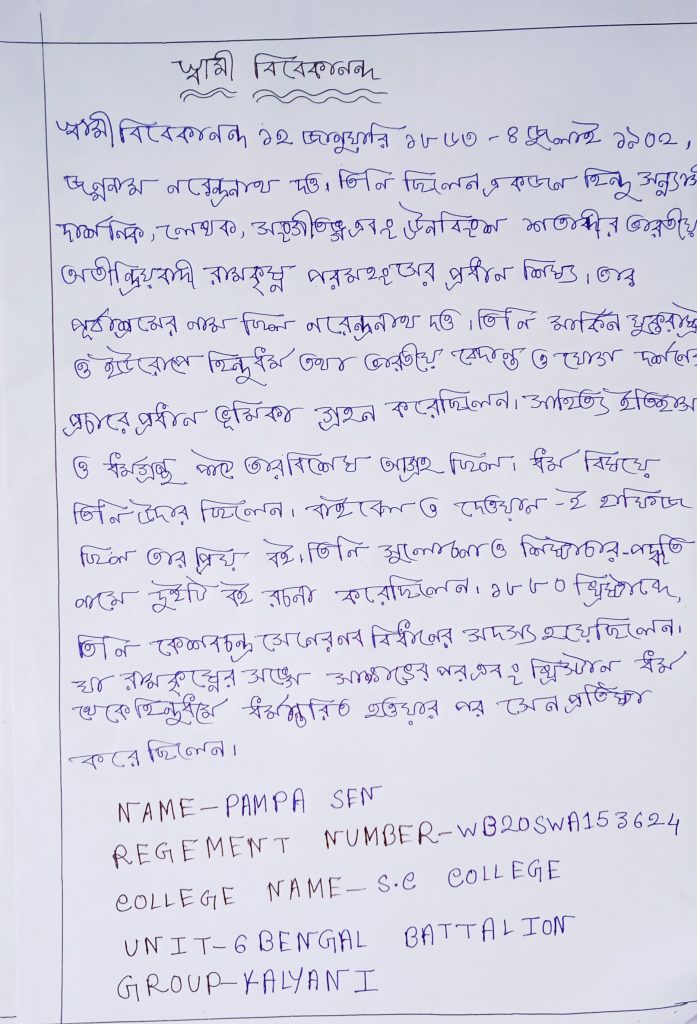 স্বামী বিবেকানন্দ
স্বামী বিবেকানন্দ ১২ জানুয়ারি ১৮৬৩ - ৪ জুলাই ১৯০২,
জন্মনাম নরেন্দ্রনাথ দত্ত। তিনি ছিলেন একজন হিন্দু সন্ন্যাসী
দার্শনিক, লেখক, সংগীতজ্ঞ এবং ঊনবিংশ শতাব্দীর ভারতীয়
অতীন্দ্রিয়বাদী রামকৃষ্ণ পরমহংসের প্রধান শিষ্য। তার
পূর্বাশ্রমের নাম ছিল নরেন্দ্রনাথ দত্ত। তিনি মার্কিন যুক্তরাষ্ট্র
ও ইউরোপে হিন্দুধর্ম তথা ভারতীয় বেদান্ত ও যোগ দর্শনের
প্রচারে প্রধান ভূমিকা গ্রহন করেছিলেন। সাহিত্য ইতিহাস
ও ধর্মগ্রন্থ পাঠে তার বিশেষ আগ্রহ ছিল। ধর্ম বিষয়ে
তিনি উদার ছিলেন। বাইবেল ও দেওয়ান - ই হাফিজ
ছিল তার প্রিয় বই। তিনি সুলোচনা ও শিষ্টাচার-পদ্ধতি
নামে দুইটি বই রচনা করেছিলেন। ১৮৮০ খ্রিষ্টাব্দে,
তিনি কেশবচন্দ্র সেনের নব বিধানের সদস্য হয়েছিলেন।
যা রামকৃষ্ণের সঙ্গে সাক্ষাতের পর এবং খ্রিস্টান ধর্ম
থেকে হিন্দুধর্মে ধর্মান্তরিত হওয়ার পর সেন প্রতিষ্ঠা
করেছিলেন।
NAME-PAMPA SEN
REGEMENT NUMBER-WB20SWA153624
COLLEGE NAME-S.C COLLEGE
UNIT-6 BENGAL BATTALION
GROUP-KALYANI